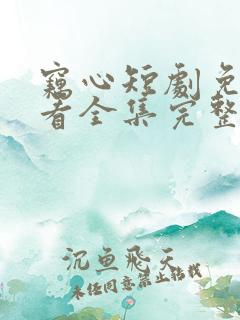 窺心短劇免
看全集完整
沉魚飛天
未经同意禁止转载